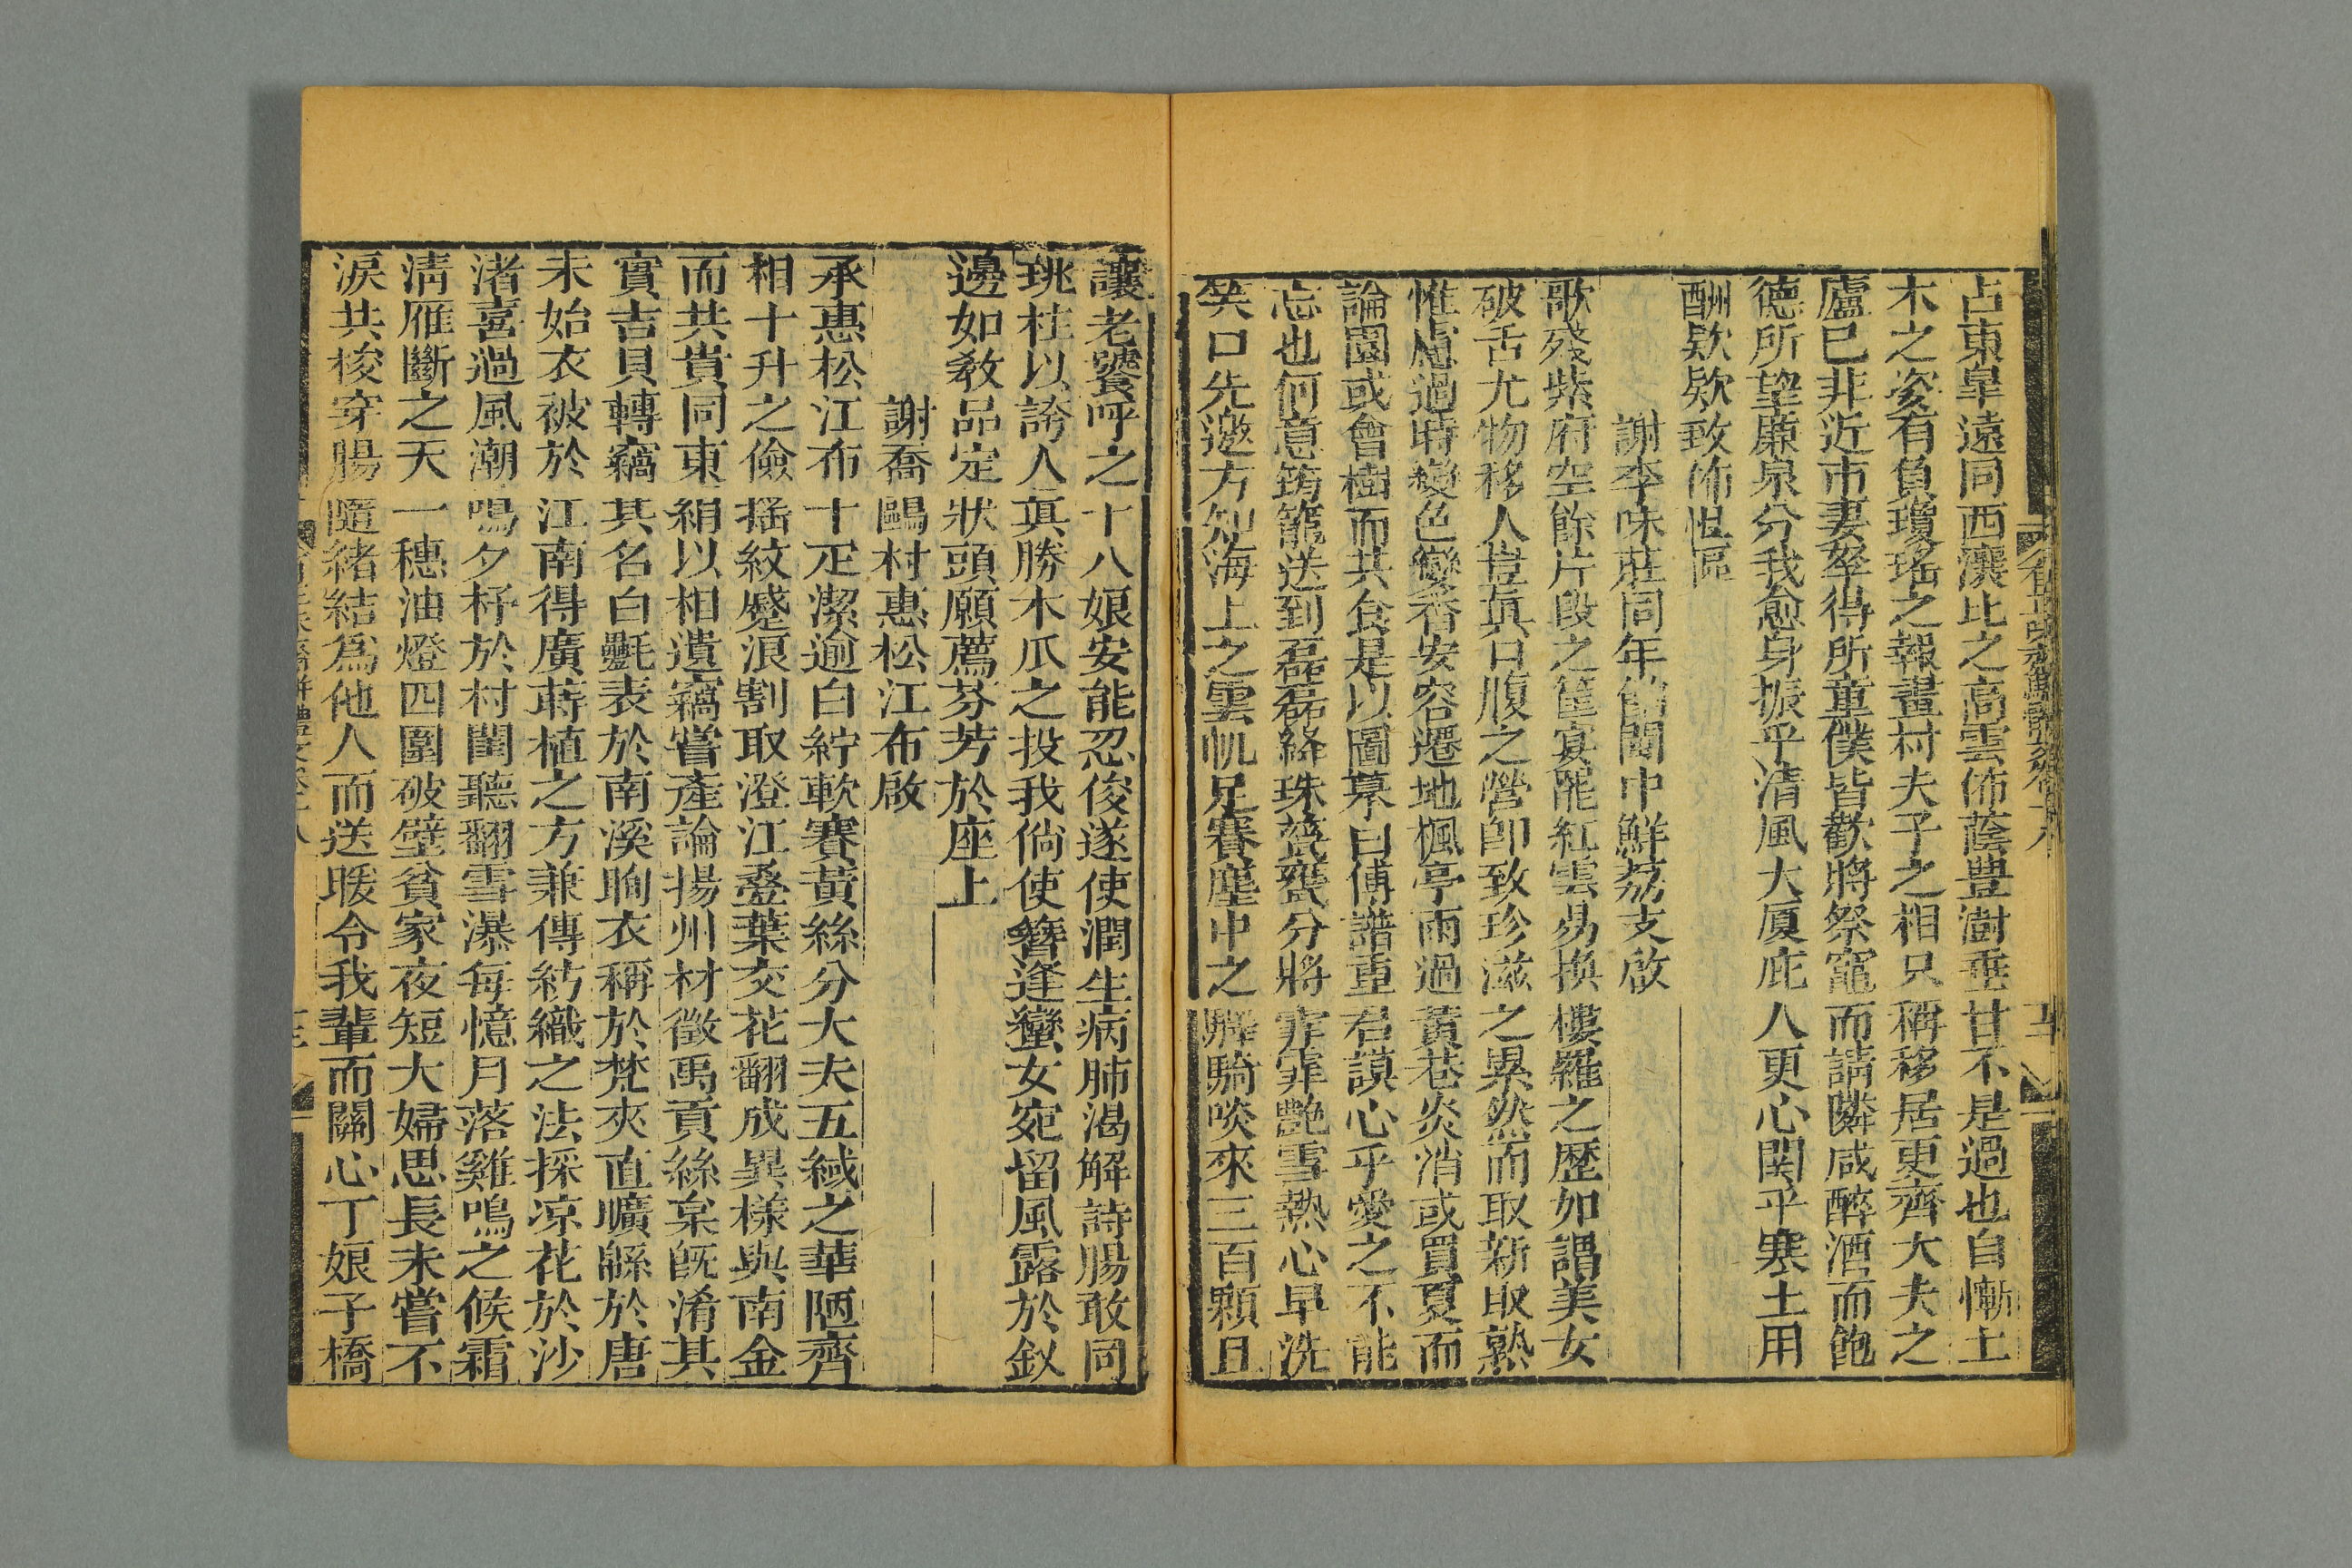 占東皐遠同西瀼比之高雲佈蔭豊澍垂甘不是過也自慚土
木之姿有負瓊瑤之報畫村夫子之相只稱移居更齊大夫之
廬已非近市妻孥得所童僕皆歡將祭竈而請隣咸醉酒而飽
德所望廉泉分我愈身振乎淸風大厦庇人更心関乎寒士用
酬欵欵致佈悃
謝李味莊同年餉閩中鮮荔支啟
歌殘紫府空餘片段之筐宴罷紅雲易換樓羅之歷如謂美女
破舌尤物移人豈眞口腹之營卽致珍滋之累然而取新取熟
惟慮過時變色變香安容遷地楓亭雨過黃巷炎消或買夏而
論園或會樹而共食是以圖摹白傅譜重君謨心乎愛之不能
忘也何意筠籠送到磊磊絳珠甆甕分將霏霏艶雪熱心早洗
笑口先邀方知海上之雲帆足賽塵中之驛騎啖來三百顆且
讓老饕呼之十八娘安能忍俊遂使潤生病肺渴解詩腸敢同
珧柱以誇人眞勝木瓜之投我倘使簪逢蠻女宛留風露於釵
邊如敎品定狀頭願薦芬芳於座上
謝喬鷗村惠松江布啟
承惠松江布十疋潔逾白紵軟賽黃絲分大夫五緎之華陋齊
相十升之儉搖紋蹙浪割取澄江疊葉交花翻成異樣與南金
而共貴同東絹以相遺竊嘗產論揚州材徵禹貢絲枲旣淆其
實吉貝轉竊其名白氎表於南溪朐衣稱於梵夾直曠緜於唐
未始衣被於江南得廣蒔植之方兼傳紡織之法採凉花於沙
渚喜過風潮鳴夕杼於村閨聽翻雪瀑每憶月落雞鳴之候霜
淸雁斷之天一穗油燈四圍破壁貧家夜短大婦思長未嘗不
淚共梭穿腸隨緒結爲他人而送暖令我輩而關心丁娘子橋